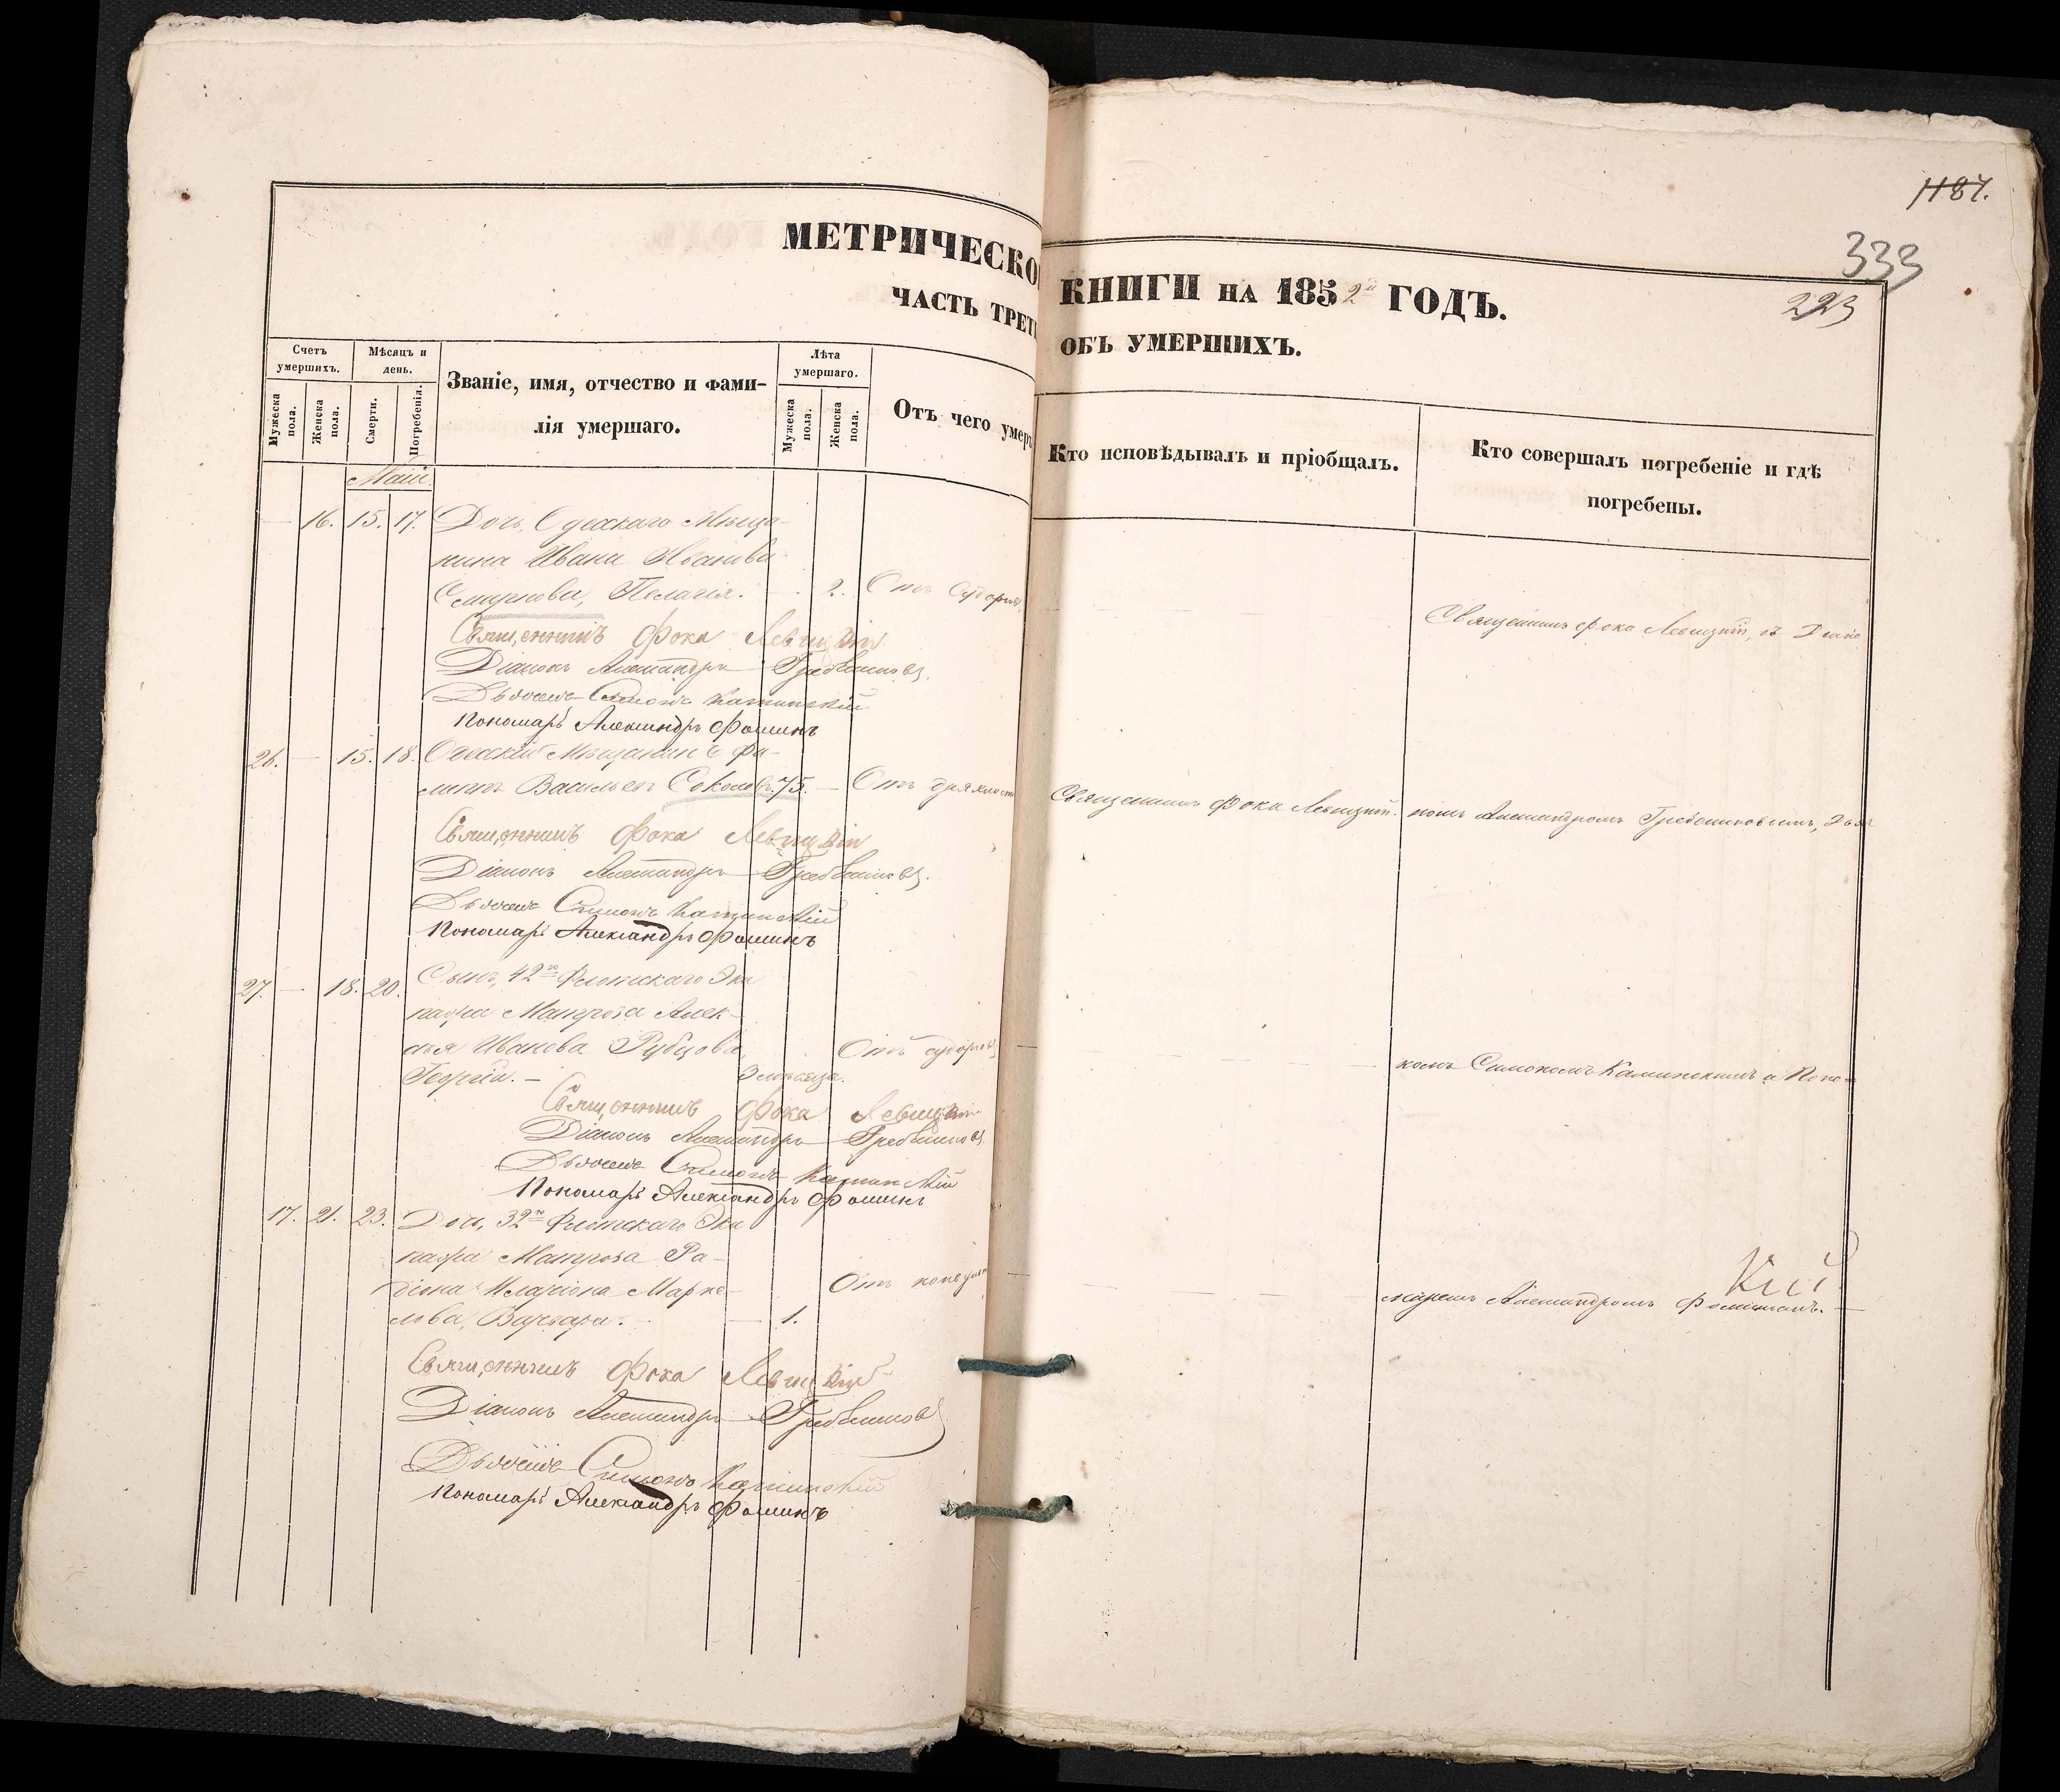 1187.
333
223
МЕТРИЧЕСКО КНИГИ НА 1852й ГОДЪ.
ЧАСТЬ ТРЕТ ОБЪ УМЕРШИХЪ.
Счетъ умершихъ.
Мѣсяцъ и день.
Званіе, имя, отчество и фами-
лія умершаго.
Лѣта умершаго.
Отъ чего умеръ
Кто исповѣдывалъ и пріобщалъ.
Кто совершалъ погребеніе и гдѣ
погребены.
Мужеска пола.
Женска пола.
Смерти.
Погребенія.
Мужеска пола.
Женска пола.
Маій.
— 16. 15. 17. Дочь, Одесскаго Мѣща-
нина Ивана Иванова
Смирнова, Пелагія. — 2. Отъ
Священникъ Фока Левицкій, съ Діако
Священникъ Фока Левицкій
Діаконъ Александръ Гребенниковъ.
Дьячекъ Симонъ Каминскій
Пономарь Александръ Фоминъ
26. — 15. 18. Одесскій Мѣщанинъ Фи-
липъ Васильевъ Соколовъ. 75. — Отъ дряхлости
Священникъ Фока Левицкій.
номъ Александромъ Гребенниковымъ, Дья
Священникъ Фока Левицкій
Діаконъ Александръ Гребенниковъ.
Дьячекъ Симонъ Каминскій
Пономарь Александръ Фоминъ
27. — 18. 20. Сынъ, 42го Флотскаго Эки
пажа Матроза Алек-
сѣя Иванова Рубцова,
Георгій. — 3 мѣсяца. Отъ
комъ Симономъ Каминскимъ и Поно-
Священникъ Фока Левицкій
Діаконъ Александръ Гребенниковъ
Дьячекъ Симонъ Каминскій
Пономарь Александръ Фоминъ
17. 21. 23. Дочь, 32го Флотскаго Эки
пажа Матроза Ра-
діона Иларіона Марке-
лова, Варвара. — — 1. Отъ
маремъ Александромъ Фоминымъ. —
Кій
Священникъ Фока Левицкій
Діаконъ Александръ Гребенниковъ
Дьячекъ Симонъ Каминскій
Пономарь Александръ Фоминъ